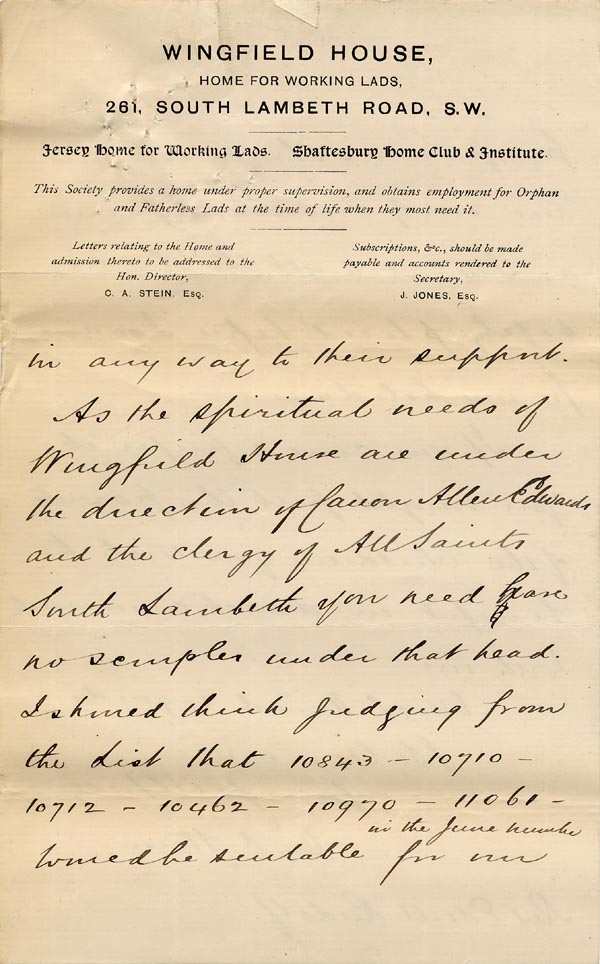 WINGFIELD HOUSE,
HOME FOR WORKING LADS,
261, SOUTH LAMBETH ROAD, S.W.
Jersey Home for Working Lads. Shaftesbury Home Club & Institute.
This Society provides a home under proper supervision, and obtains employment for Orphan
and Fatherless Lads at the time of life when they most need it.
Letters relating to the Home and
admission thereto to be addressed to the
Hon. Director,
C. A. STEIN, Esq.
Subscriptions, &c., should be made
payable and accounts rendered to the
Secretary,
J. JONES, Esq.
in any way to their support.
As the spiritual needs of
Wingfield House are under
the direction of Canon Allen Edwards
and the clergy of All Saints
South Lambeth you need have
no scruples under that head.
I should think judging from
the List that 10843 – 10710 –
10712 – 10462 – 10970 – 11061 –
in the June number
would be suitable for our